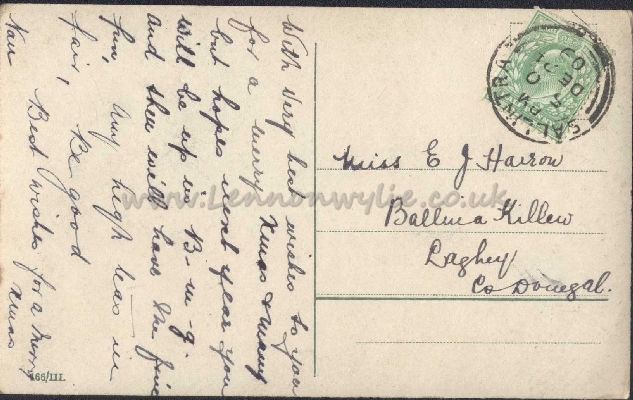 With very best wishes to you
for a merry Xmas & many
but hopes next year you
will be up in B-m-g.
and then will have the fine
fun, any high teas in
fair, Be good
Best wishes for a merry
Xmas
Nan
166/III.
BALLINTRA
5 PM
DE 20
09
Miss E J Harron
Ballina Killew
Laghey
Co Donegal.
www.Lennonwylie.co.uk